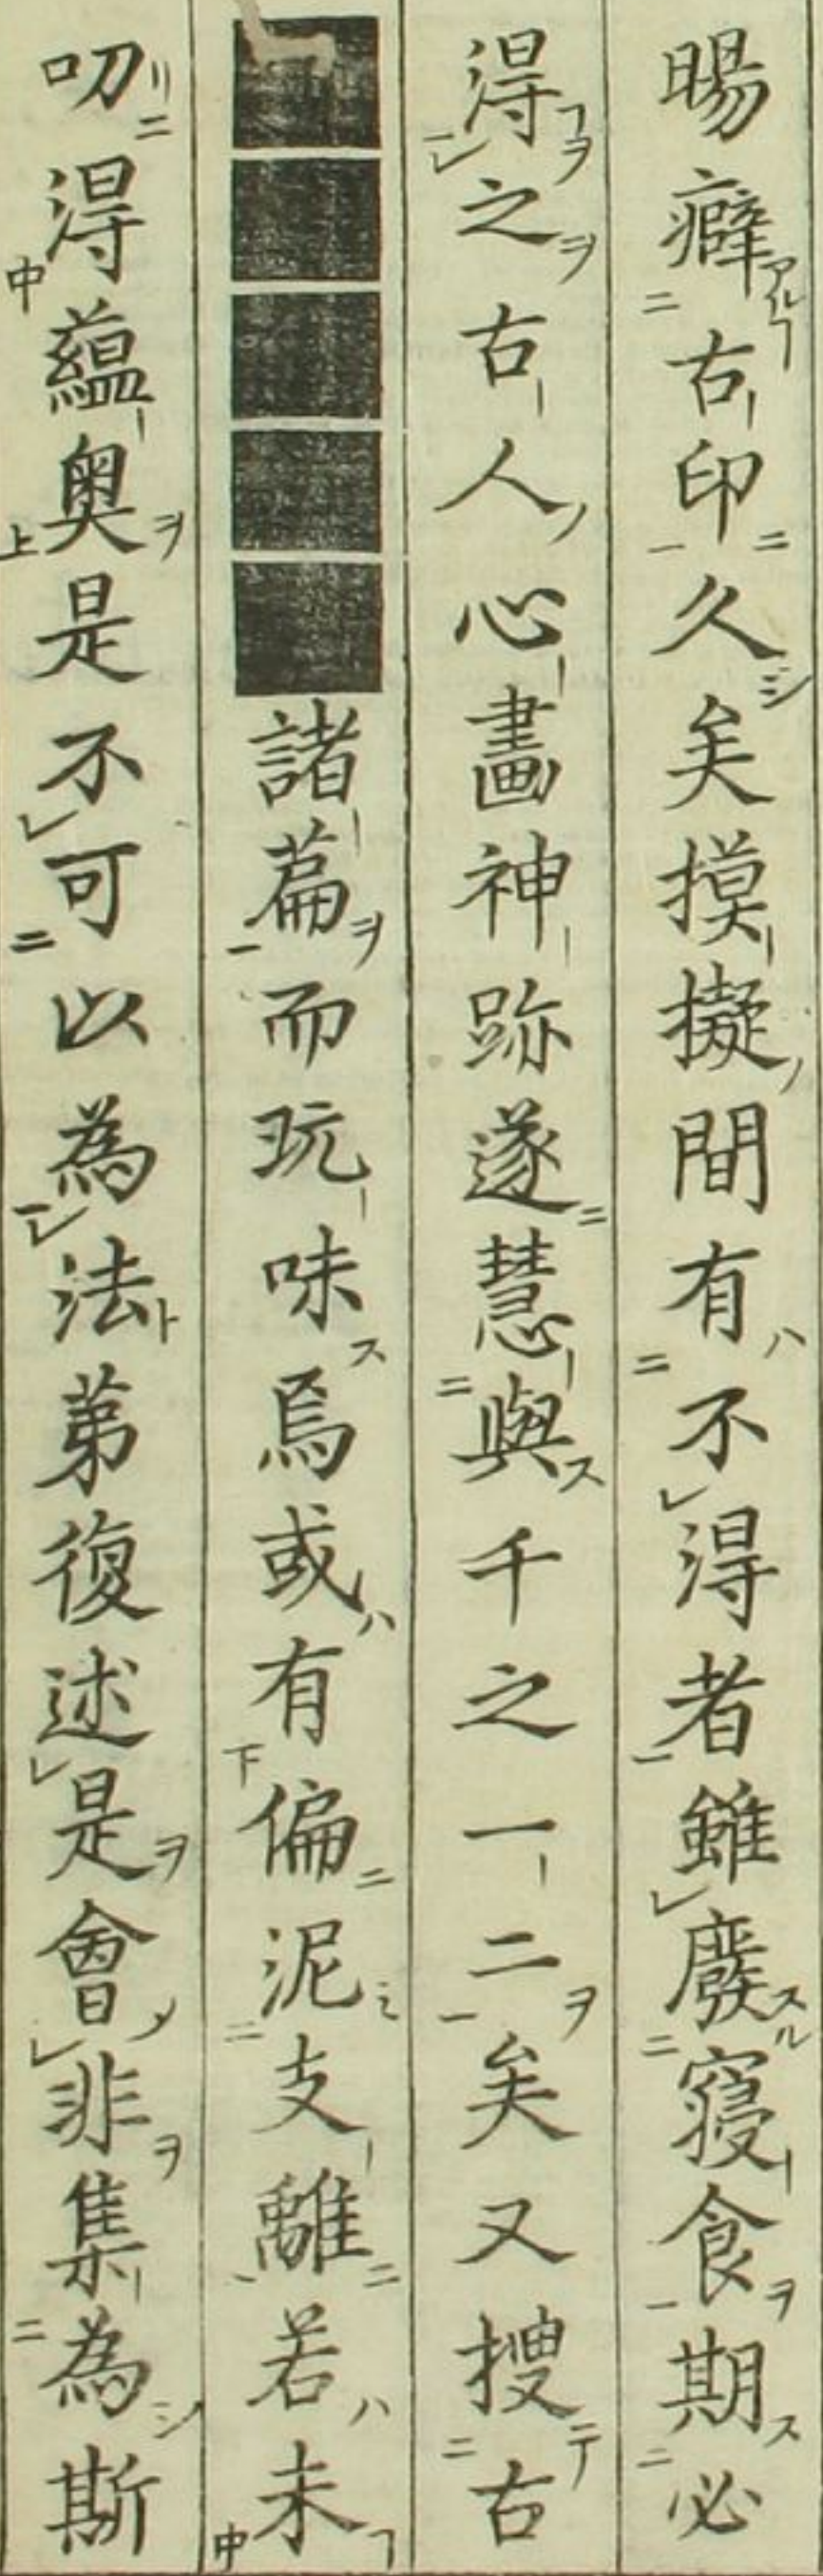 暘癖古印久矣摸擬間有不得者雖廢寢食期必
得之古人心畫神跡遂慧與千之一二矣又搜古
■■■■■諸篇而玩味焉或有偏泥支離若未
叨得蘊奧是不可以為法苐復述是會非集為斯